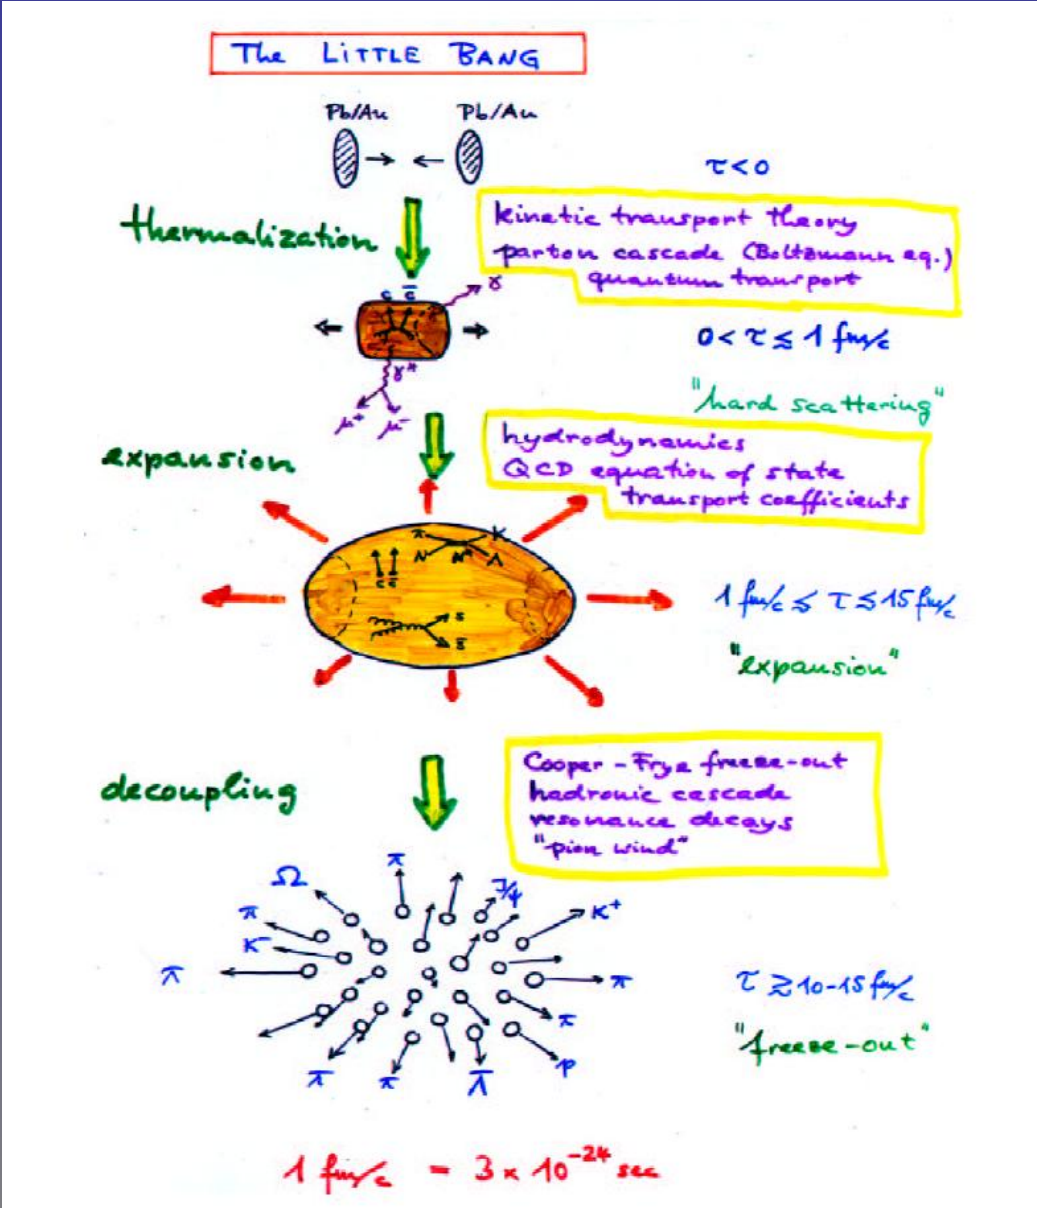 The LITTLE BANG
Pb/Au Pb/Au
τ < 0
thermalization
kinetic transport theory
parton cascade (Boltzmann eq.)
quantum transport
c c̄
γ
0 < τ ≲ 1 fm/c
γ*
μ+ μ-
"hard scattering"
expansion
hydrodynamics
QCD equation of state
transport coefficients
π K
N N* Λ
c c̄
s
s̄
1 fm/c ≲ τ ≲ 15 fm/c
"expansion"
decoupling
Cooper-Frye freeze-out
hadronic cascade
resonance decays
"pion wind"
π
Ω J/ψ
π K+
K-
π π
τ ≳ 10-15 fm/c
π
"freeze-out"
π π Λ̄ p
1 fm/c = 3 × 10^-24 sec